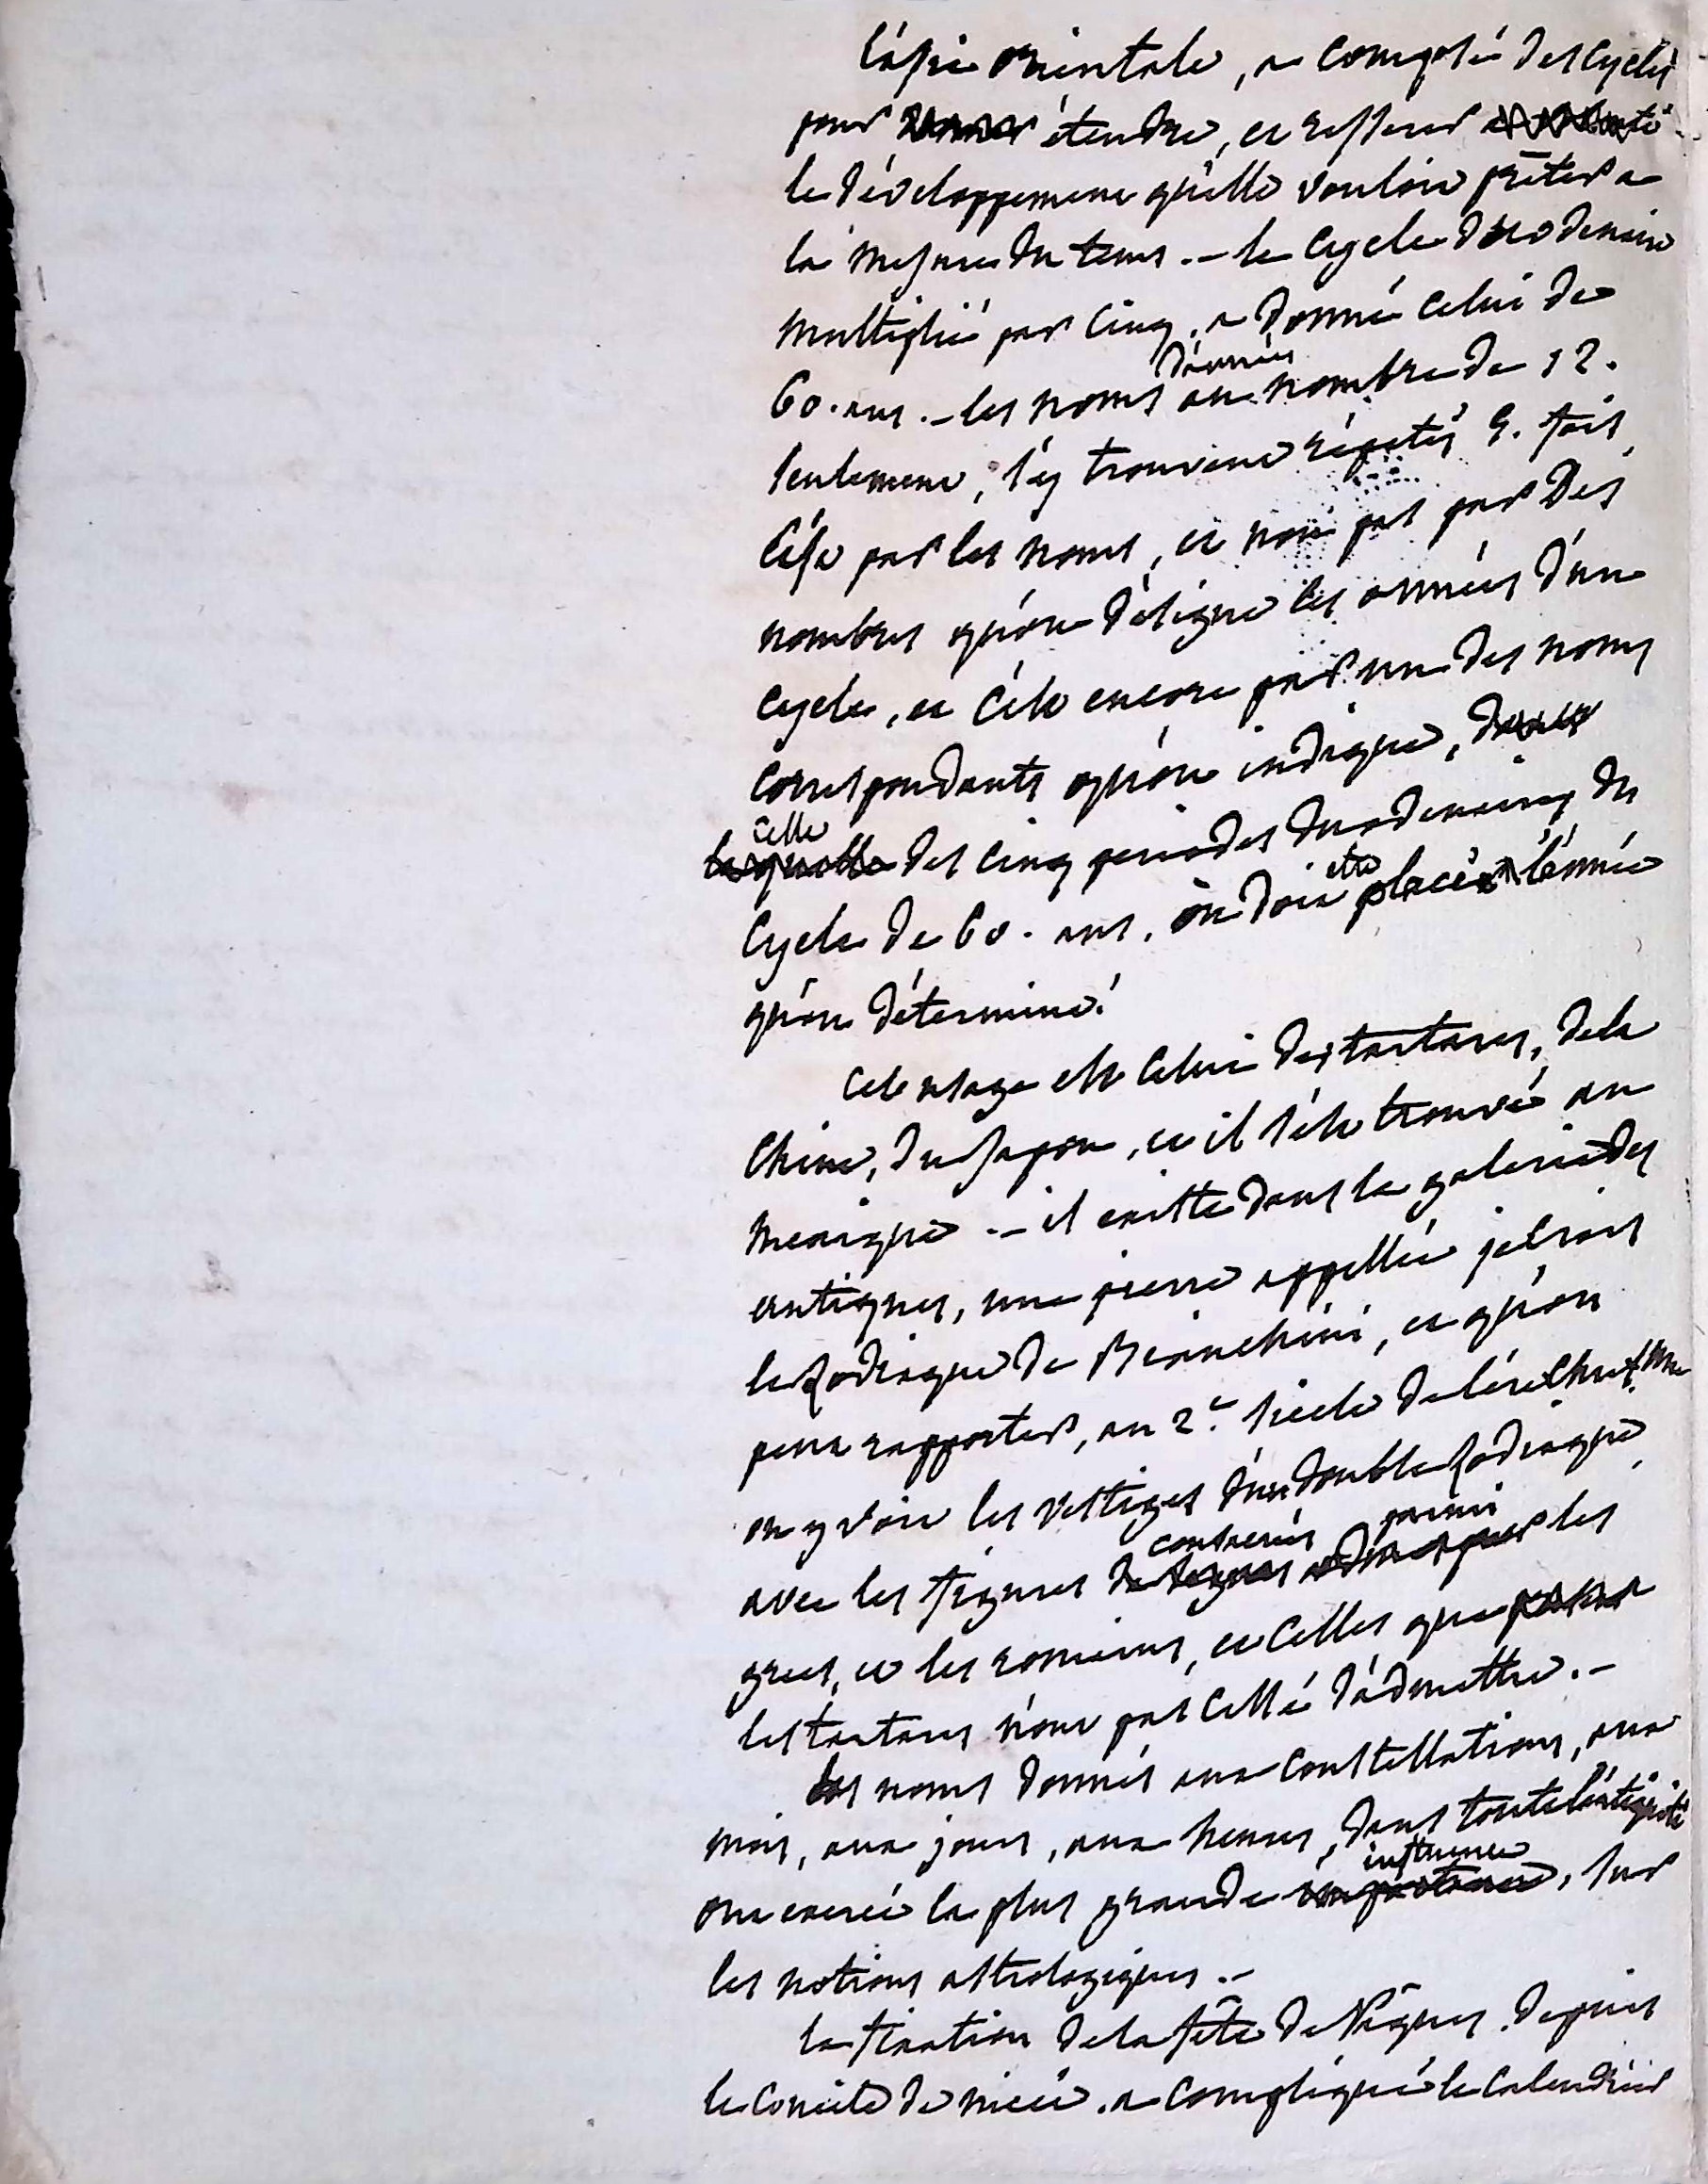 l'asie orientale, a composé des cycles
pour étendre, et resserrer
le développement qu'elle vouloit prêter a
la mesure du tems. — le cycle duodenaire
multiplié par cinq, a donné celui de
60. ans. — les noms d'années au nombre de 12.
seulement, s'y trouvent répetés 5. fois,
c'est par les noms, et non pas par des
nombres qu'on désigne les années d'un
cycle, et c'est encore par un des noms
correspondants qu'on indique,
celle des cinq periodes duodenaires du
cycle de 60. ans, où doit etre placée l'année
qu'on détermine.
Cet usage est celui des tartares, de la
Chine, du Japon, et il s'est trouvé au
mexique — il existe dans la galerie des
antiques, une pierre appellée je crois
le Zodiaque de Bianchini, et qu'on
peut rapporter, au 2.e siecle de l'ère Chret.nne
on y voit les vestiges d'un double Zodiaque
avec les figures consacrées parmi les
grecs, et les romains, et celles que
les tartares n'ont pas cessé d'admettre. —
les noms donnés aux constellations, aux
mois, aux jours, aux heures, dans toute l'antiquité
ont exercé la plus grande influence, sur
les notions astrologiques. —
la fixation de la fête de Pâques depuis
le Concile de nicée. a compliqué le Calendrier